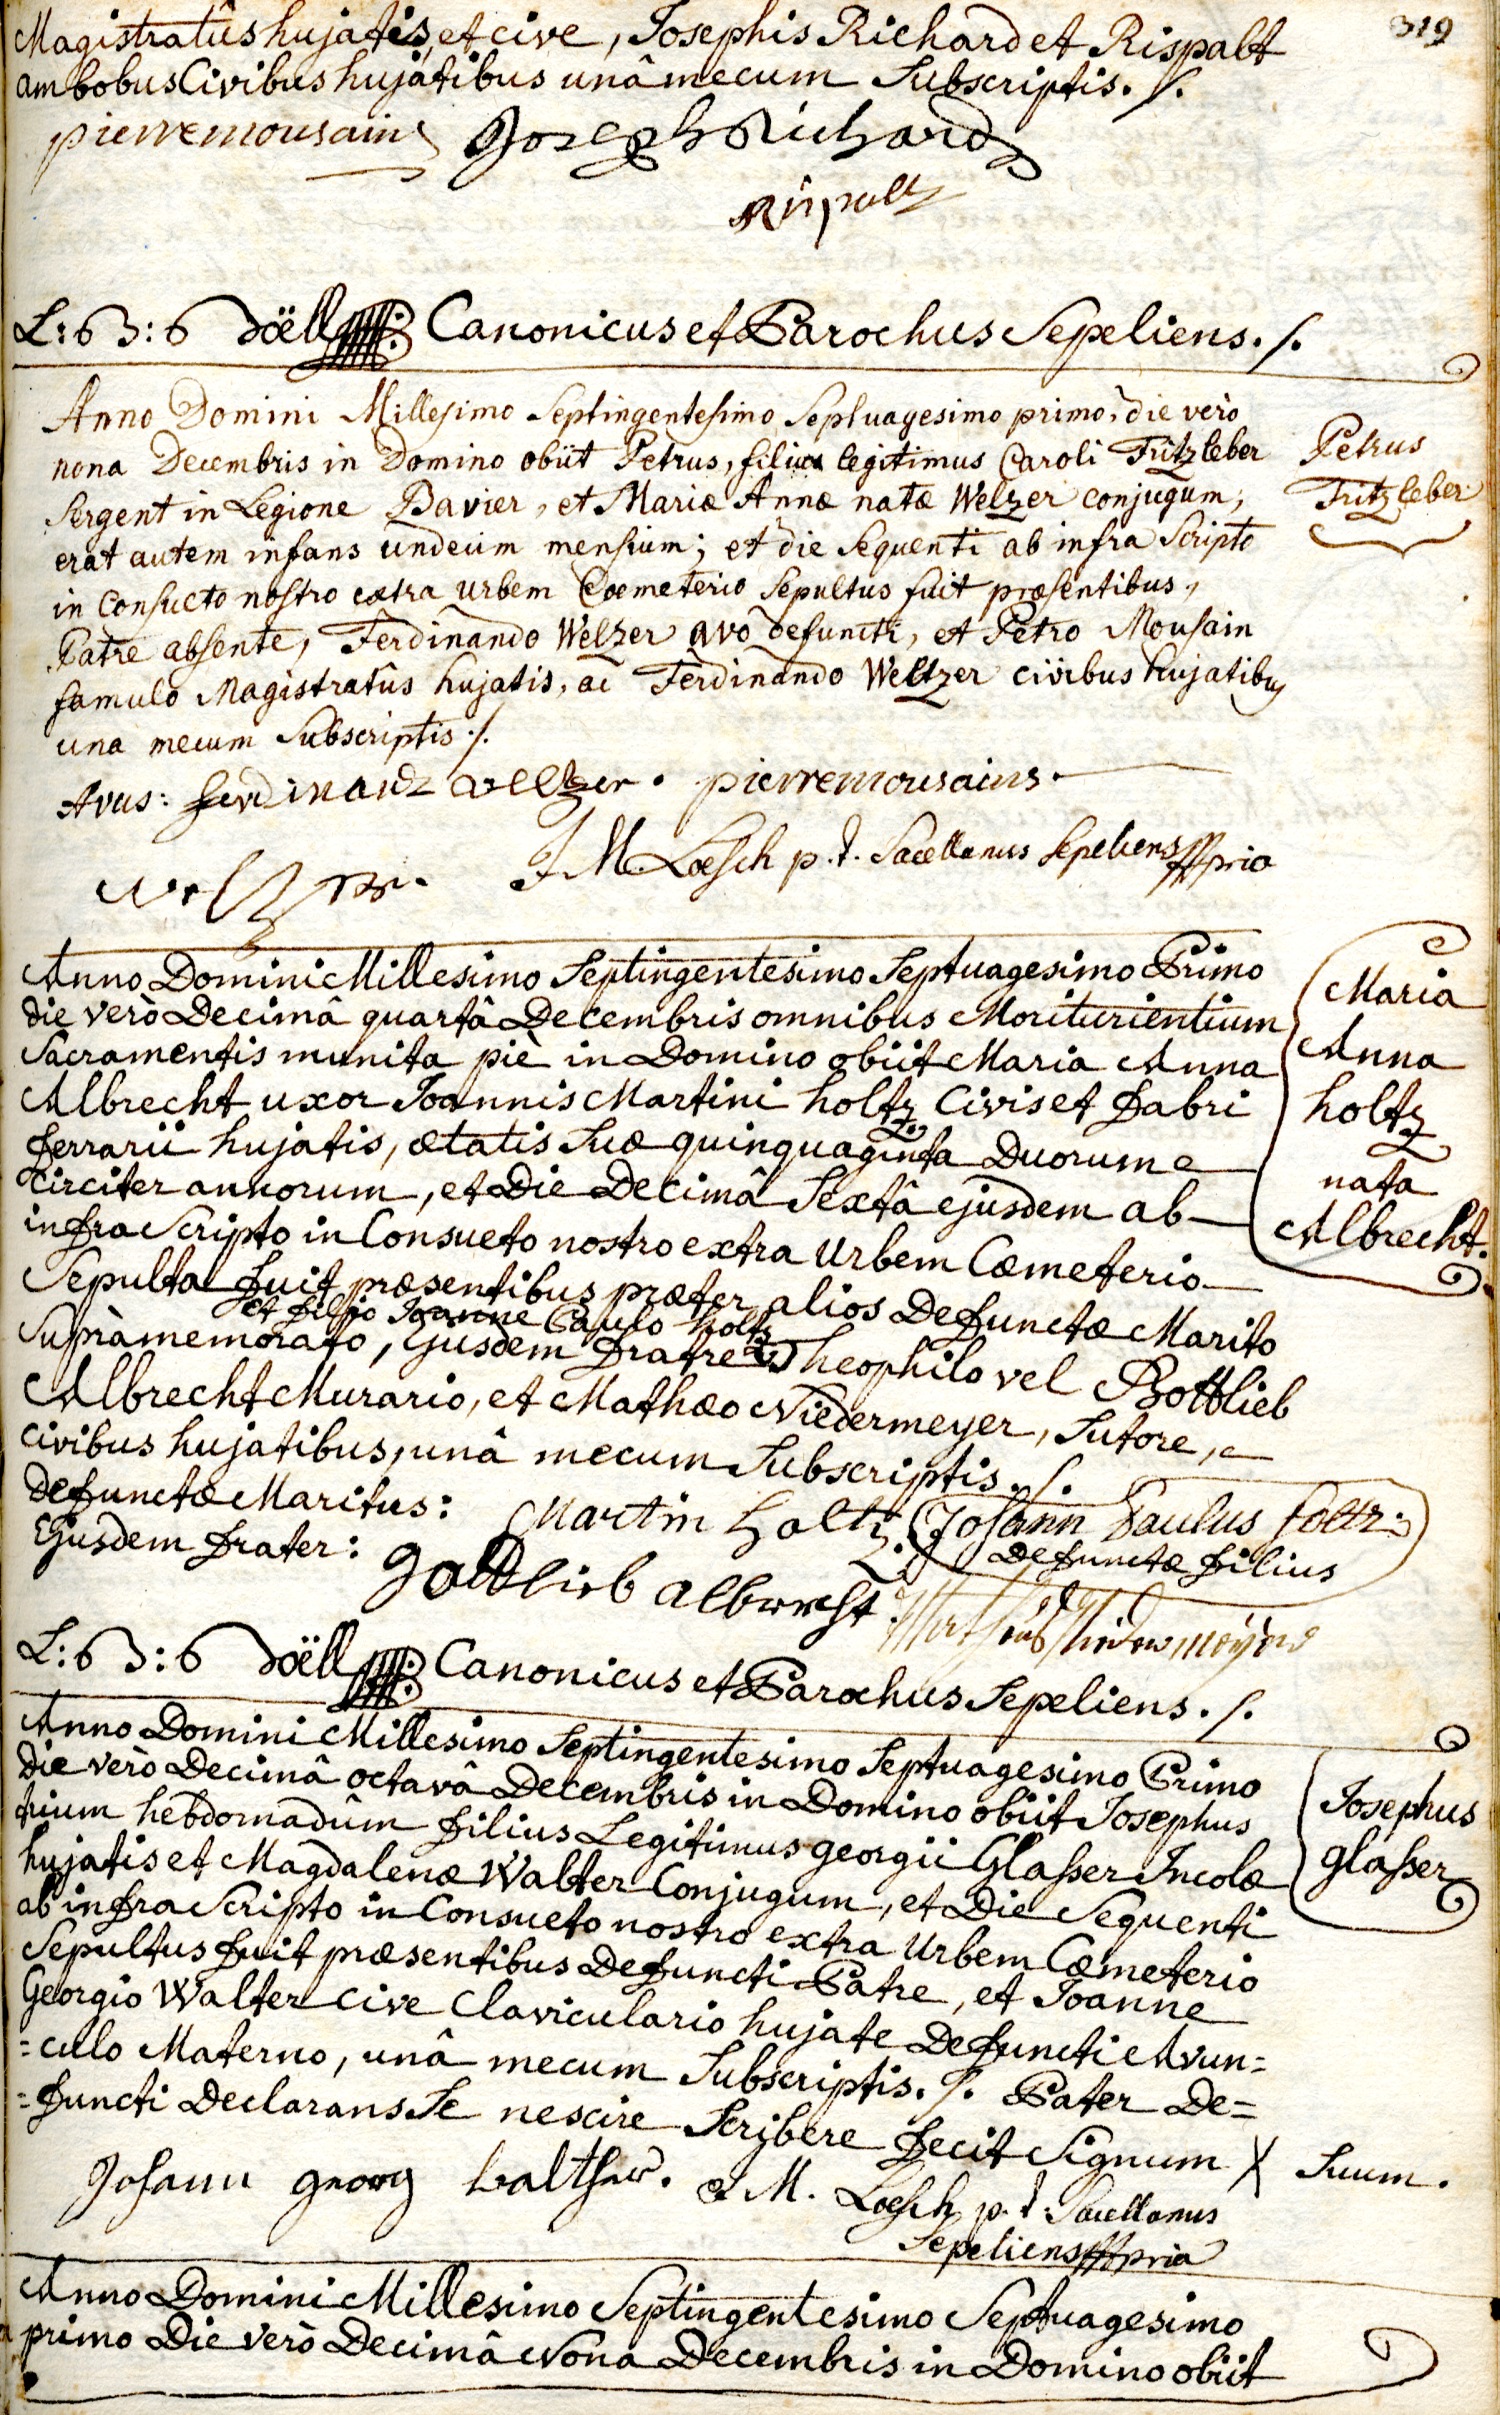 319
Magistratûs hujatis, et cive, Josephis Richard et Rispalt
ambobus Civibus hujatibus unâ mecum Subscriptis ./.
pierre mousain
Joseph Richard
Rispalt
L: B: G Doëll Canonicus et Parochus Sepeliens ./.
Anno Domini Millesimo Septingentesimo Septuagesimo primo, die verò
nona Decembris in Domino obiit Petrus, filius legitimus Caroli Fritzleber
Sergent in Legione Bavier, et Mariæ Annæ natæ Welzer conjugum,
erat autem infans undecim mensium; et die Sequenti ab infra Scripto
in Consueto nostro extra urbem Coemeterio Sepultus fuit præsentibus,
Patre absente, Ferdinando Welzer avo defuncti, et Petro Mousain
famulo Magistratûs hujatis, ac Ferdinando Weltzer civibus hujatibus
una mecum Subscriptis ./.
Petrus
Fritzleber
Avus: ferdinand Weltzer. pierre mousains.
Welzer.
J M. Loesch p. t. Sacellanus Sepeliens mppria
Anno Domini Millesimo Septingentesimo Septuagesimo Primo
die verò Decimâ quartâ Decembris omnibus Moriturientium
Sacramentis munita piè in Domino obiit Maria Anna
Albrecht uxor Joannis Martini holtz Civis et Fabri
Ferrarii hujatis, ætatis Suæ quinquaginta Duorum
circiter annorum, et Die Decimâ Sextâ ejusdem ab
infra Scripto in Consueto nostro extra Urbem Cæmeterio
Sepulta Fuit præsentibus præter alios Defunctæ Marito
et Filio Joanne Paulo holtz
Supràmemorato, Ejusdem Fratre Theophilo vel Gottlieb
Albrecht Murario, et Mathæo Niedermeyer, Sutore,
civibus hujatibus, unâ mecum Subscriptis ./.
Maria
Anna
holtz
nata
Albrecht.
Defunctæ Maritus: Martin holtz. Johann Paulus holtz.
Defunctæ Filius
Ejusdem Frater: Gottlieb albrecht.
Matheus Niedermeyer
L: B: G Doëll Canonicus et Parochus Sepeliens ./.
Anno Domini Millesimo Septingentesimo Septuagesimo Primo
die verò Decimâ octavâ Decembris in Domino obiit Josephus
trium hebdomadûm Filius Legitimus georgii Glasser Incolæ
hujatis et Magdalenæ Walter Conjugum, et Die Sequenti
ab infra Scripto in Consueto nostro extra Urbem Cæmeterio
Sepultus Fuit præsentibus Defuncti Patre, et Joanne
Georgio Walter cive Claviculario hujate Defuncti Avun=
=culo Materno, unâ mecum Subscriptis ./. Pater De=
=functi Declarans Se nescire Scribere Fecit Signum X Suum.
Josephus
glasser
Johann georg walther. J M. Loesch p. t. Sacellanus
Sepeliens mppria
Anno Domini Millesimo Septingentesimo Septuagesimo
primo Die verò Decimâ Nona Decembris in Domino obiit